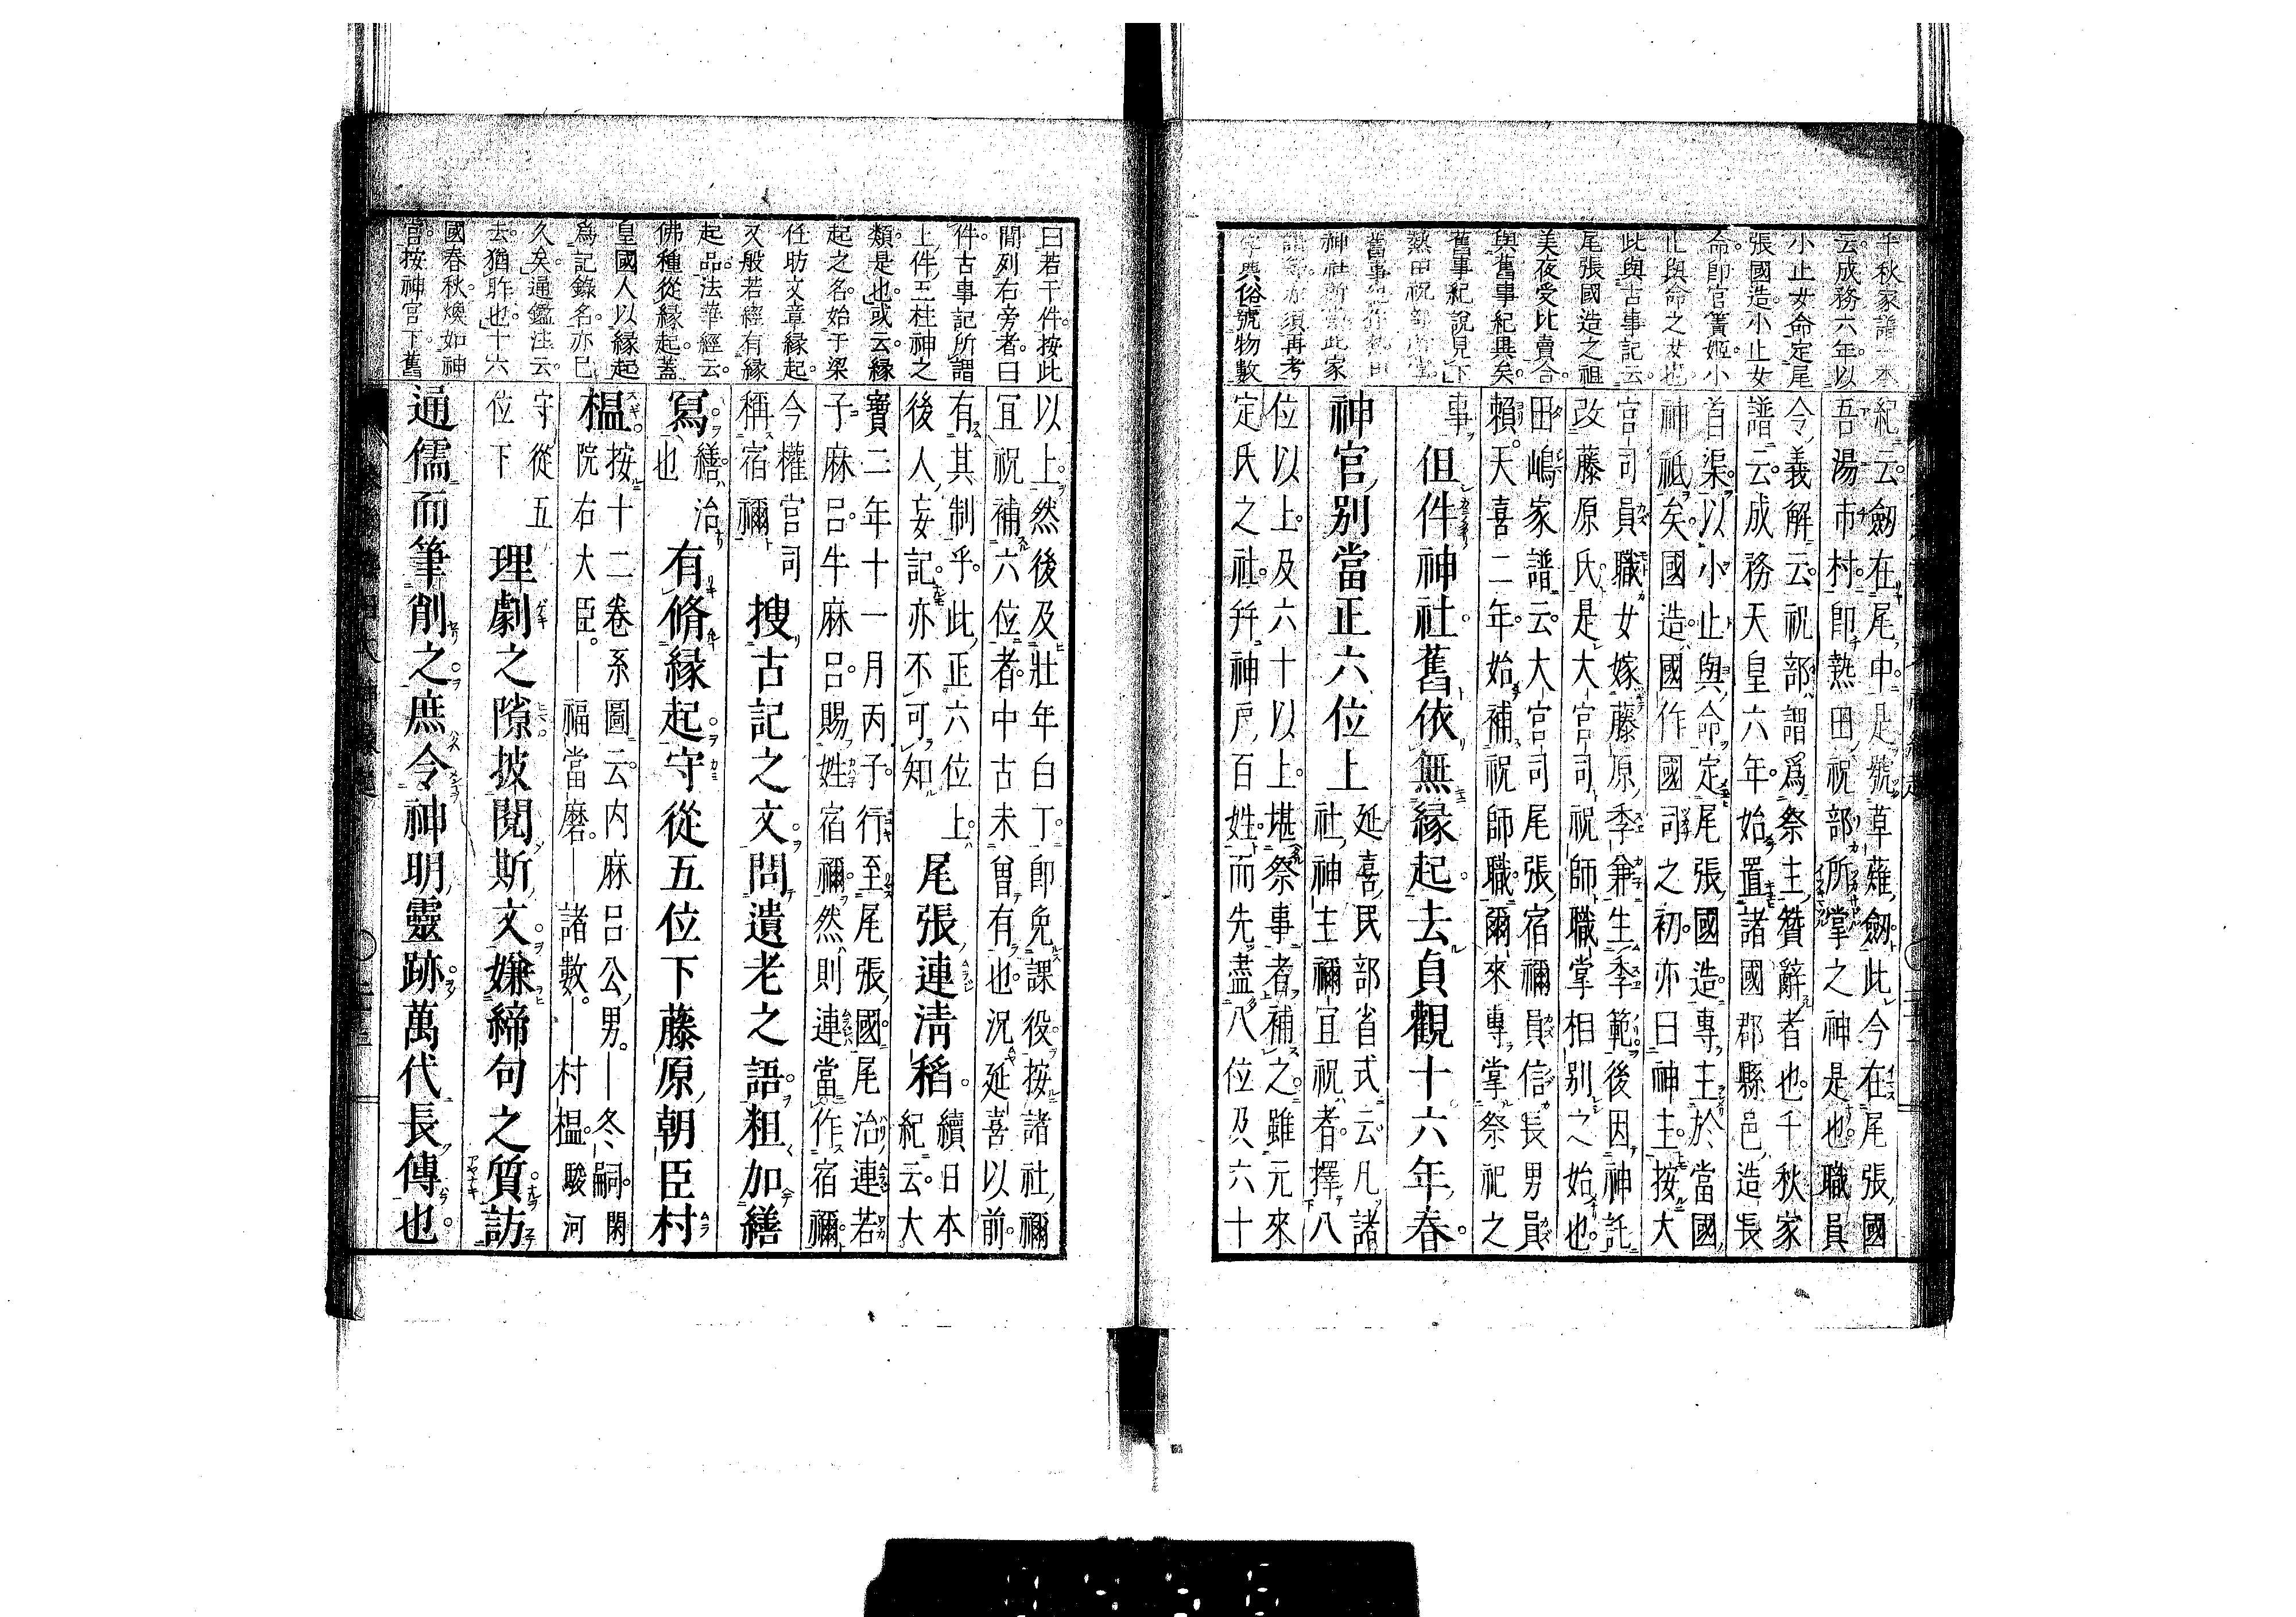 千秋家譜一本
云成務六年以
小止女命定尾
張國造小止女
命即官簀姬小
止與命之女也
此與古事記云
尾張國造之祖
美夜受比賣合
與舊事紀異矣
舊事紀說見下
字典俗號物數
紀云劔在尾中是號草薙劔此今在尾張國
吾湯市村即熱田祝部所掌之神是也職員
令義解云祝部謂爲祭主贊辭者也千秋家
譜云成務天皇六年始置諸國郡縣邑造長
首渠以小止與命定尾張國造專主於當國
神祇矣國造國作國司之初亦曰神主按大
宮司員職女嫁藤原季兼生季範後因神託
改藤原氏是大宮司祝師職掌相別之始也
田嶋家譜云大宮司尾張宿禰員信長男員
賴天喜二年始補祝師職爾來專掌祭祀之
事
但件神社舊依無縁起去貞觀十六年春
神官別當正六位上
延喜民部省式云凡諸
社神主禰宜祝者擇八
位以上及六十以上堪祭事者補之雖元來
定氏之社幷神戶百姓而先盡八位及六十
曰若干件按此
間列右旁者曰
件古事記所謂
上件五柱神之
類是也或云縁
起之名始于梁
任昉文章縁起
又般若經有縁
起品法華經云
佛種從縁起蓋
皇國人以縁起
爲記錄名亦已
久矣通鑑注云
去猶昨也十六
國春秋煥如神
宮按神宮下舊
以上然後及壯年白丁即免課役按諸社禰
宜祝補六位者中古未曾有也況延喜以前
有其制乎此正六位上
後人妄記亦不可知
尾張連淸稻
續日本
紀云大
寶二年十一月丙子行至尾張國尾治連若
子麻呂牛麻呂賜姓宿禰然則連當作宿禰
今權宮司
稱宿禰
搜古記之文問遺老之語粗加繕
寫
繕治
也
有脩縁起守從五位下藤原朝臣村
椙
按十二卷系圖云內麻呂公男―冬嗣閑
院右大臣―福當磨―諸數―村椙駿河
守從五
位下
理劇之隙披閱斯文嫌締句之質訪
通儒而筆削之庶令神明靈跡萬代長傳也